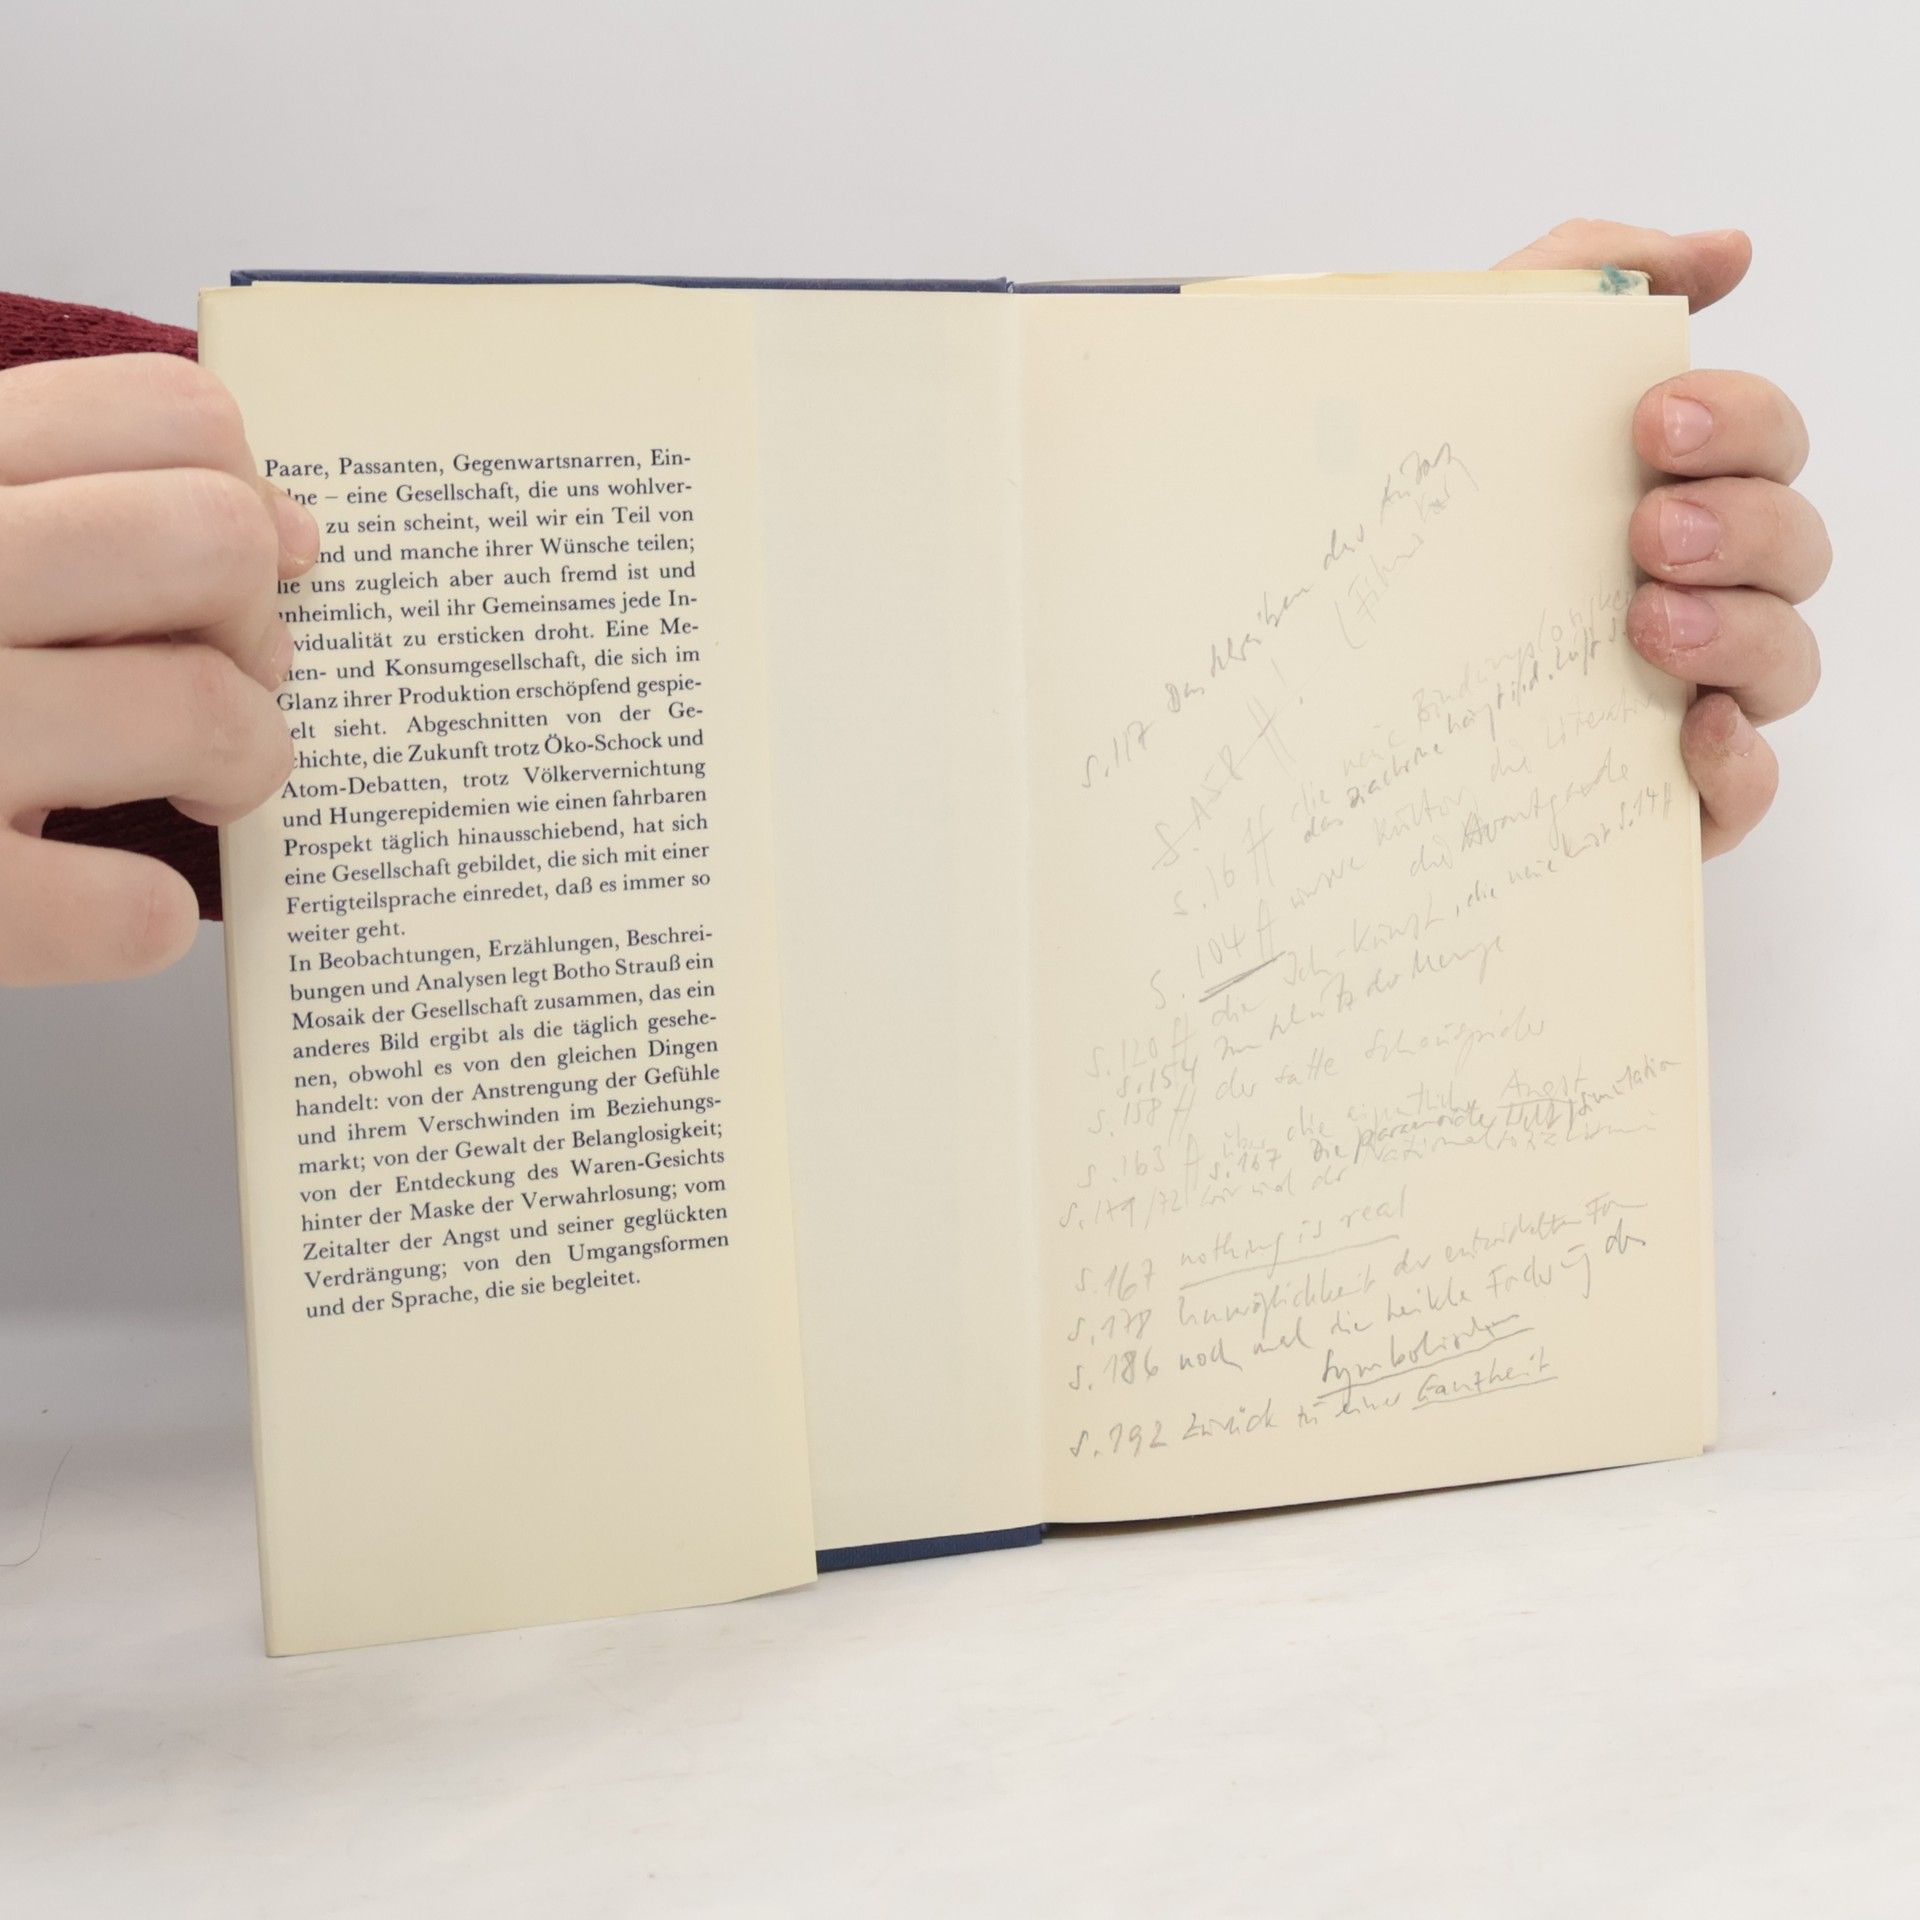 Paare, Passanten, Gegenwartsnarren, Ein-
lne – eine Gesellschaft, die uns wohlver-
zu sein scheint, weil wir ein Teil von
nd und manche ihrer Wünsche teilen;
ie uns zugleich aber auch fremd ist und
nheimlich, weil ihr Gemeinsames jede In-
vidualität zu ersticken droht. Eine Me-
ien- und Konsumgesellschaft, die sich im
Glanz ihrer Produktion erschöpfend gespie-
elt sieht. Abgeschnitten von der Ge-
chichte, die Zukunft trotz Öko-Schock und
Atom-Debatten, trotz Völkervernichtung
und Hungerepidemien wie einen fahrbaren
Prospekt täglich hinausschiebend, hat sich
eine Gesellschaft gebildet, die sich mit einer
Fertigteilsprache einredet, daß es immer so
weiter geht.
In Beobachtungen, Erzählungen, Beschrei-
bungen und Analysen legt Botho Strauß ein
Mosaik der Gesellschaft zusammen, das ein
anderes Bild ergibt als die täglich gesehe-
nen, obwohl es von den gleichen Dingen
handelt: von der Anstrengung der Gefühle
und ihrem Verschwinden im Beziehungs-
markt; von der Gewalt der Belanglosigkeit;
von der Entdeckung des Waren-Gesichts
hinter der Maske der Verwahrlosung; vom
Zeitalter der Angst und seiner geglückten
Verdrängung; von den Umgangsformen
und der Sprache, die sie begleitet.
S. 117 der
S. 16 ff die neue
das
S. 104 ff unsere Kultur die Literatur
die Avantgarde
S. 120 ff die Ich-Kunst, die neue Kunst S. 14 ff
S. 154 zum der Menge
S. 158 ff der satte Schauspieler
S. 163 ff über die eigentliche Angst
S. 167 Die paranoide Welt/Simulation
wir und der Nationalsozialismus
S. 167 nothing is real
S. 178 Unmöglichkeit der entwickelten Form
S. 186 noch mal die heikle Forderung des
Symbolischen
S. 192 zurück zu einer Ganzheit